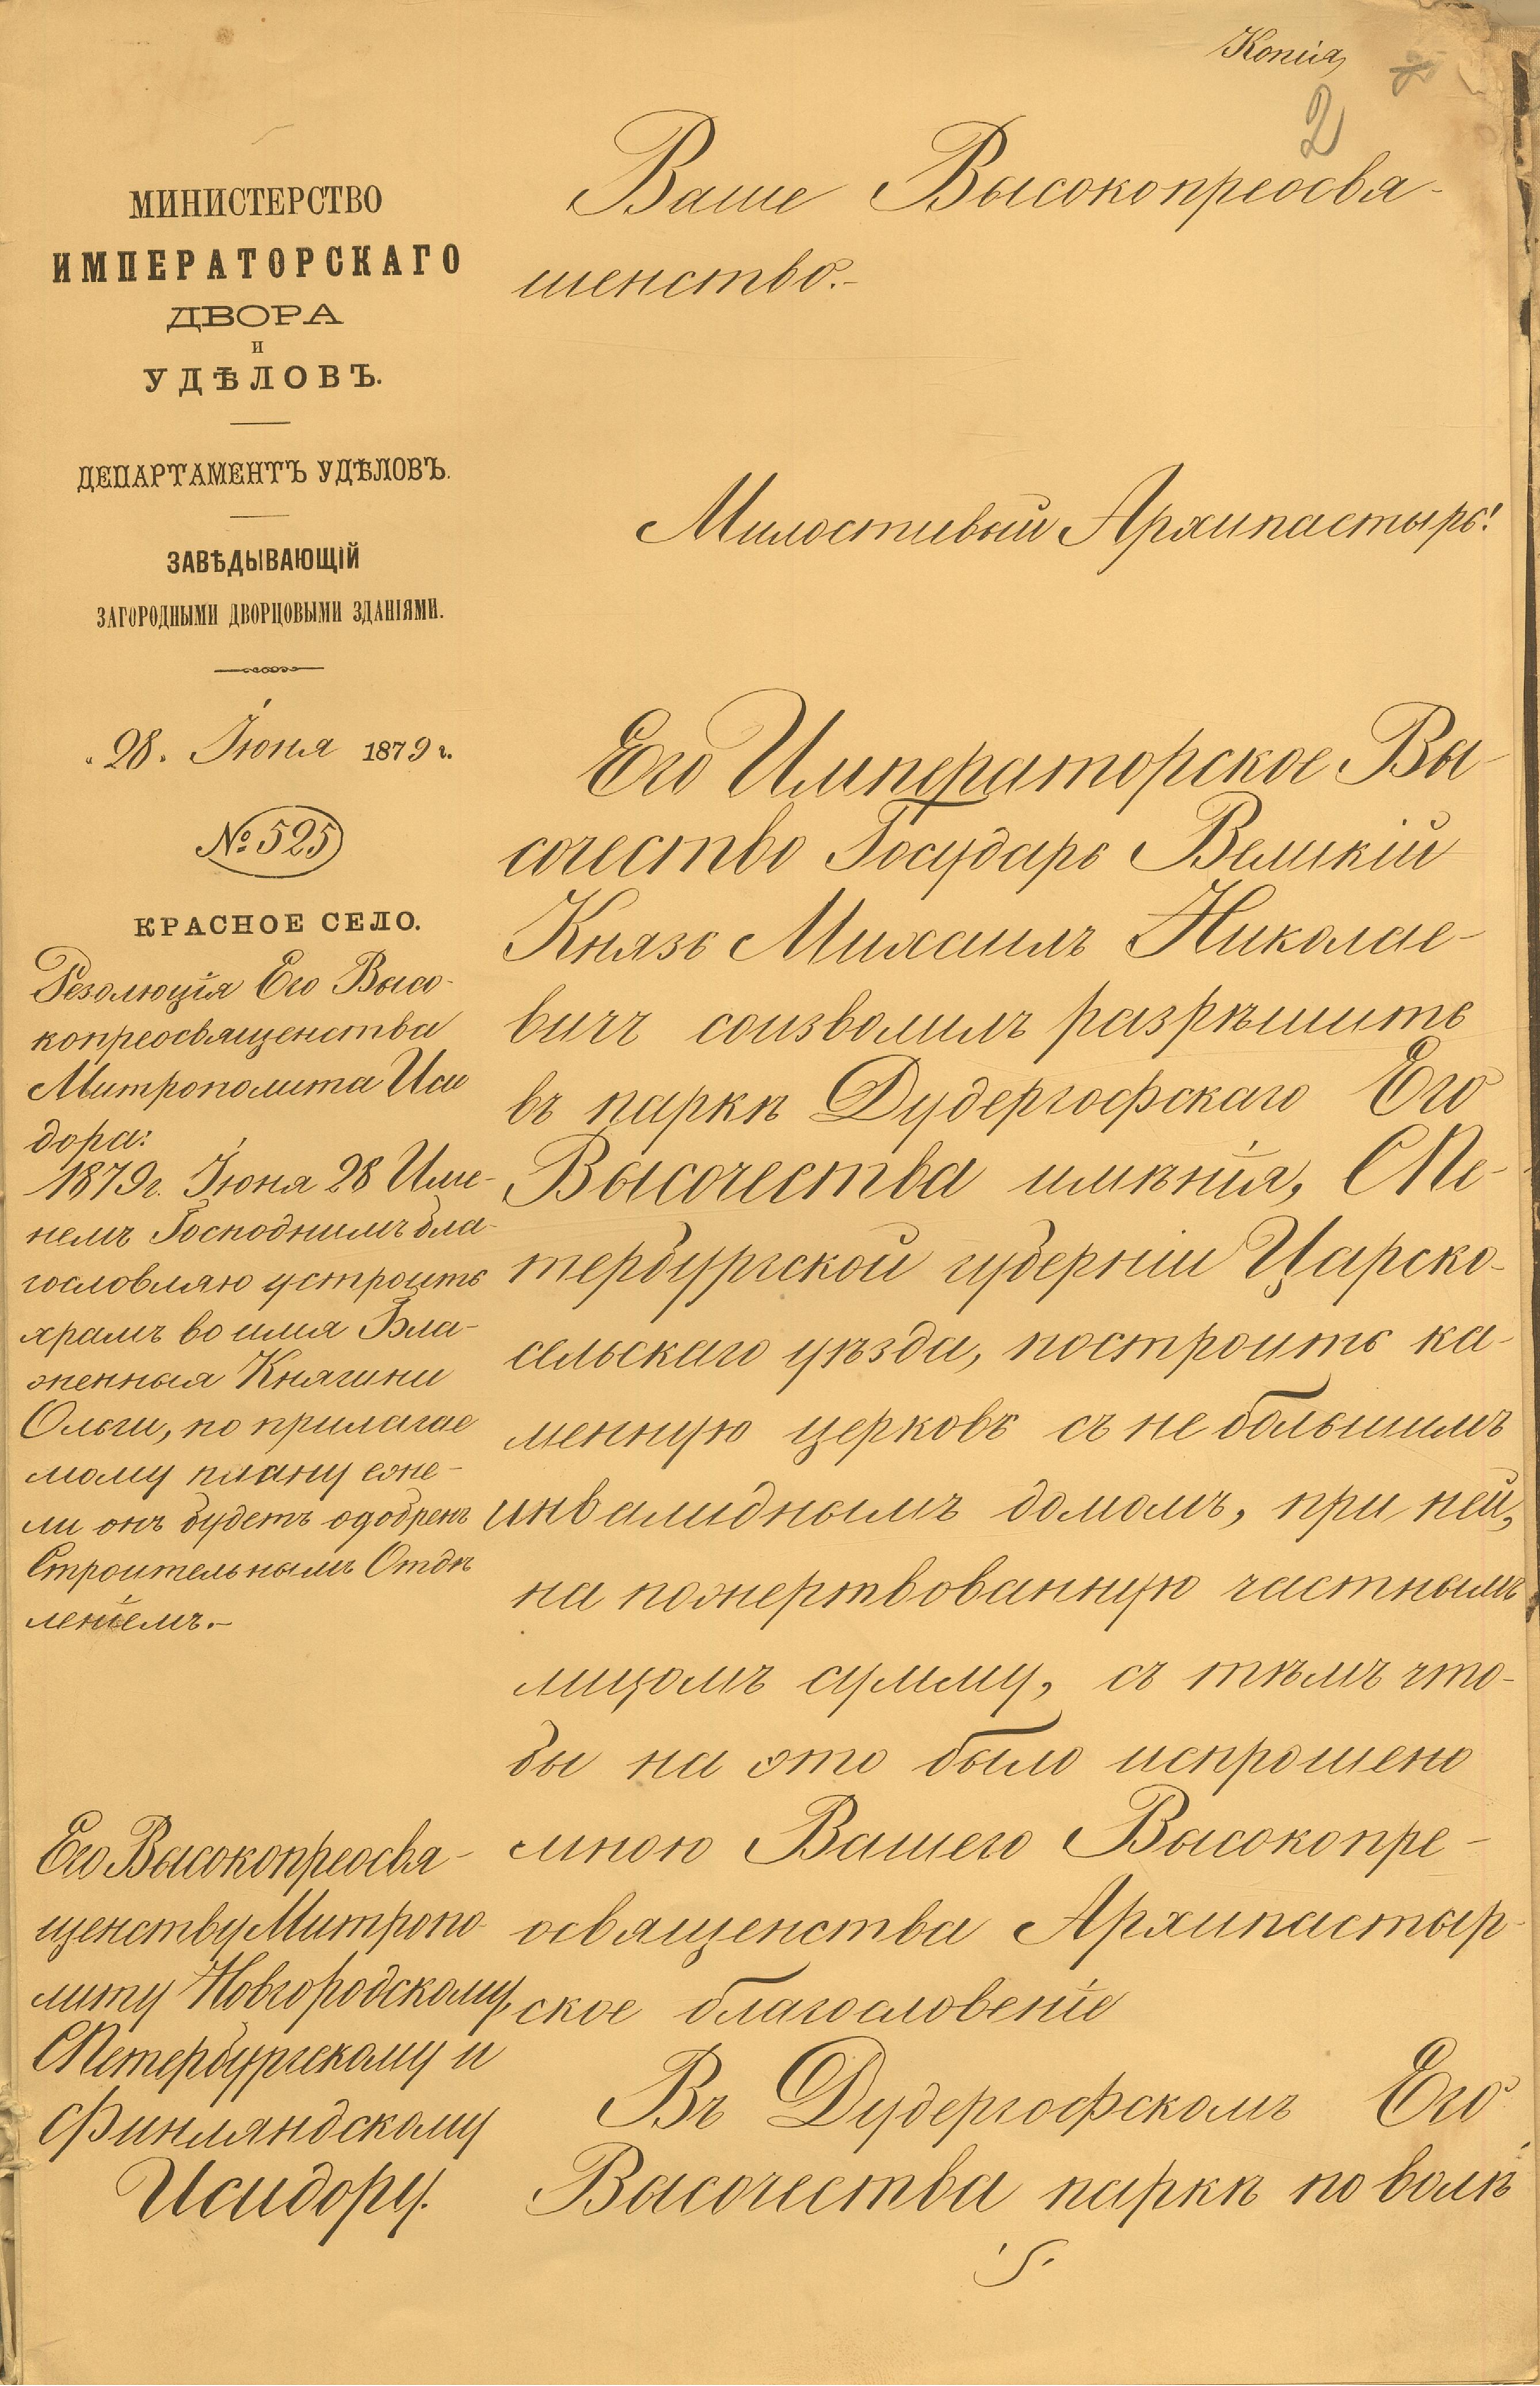 Копія
2
МИНИСТЕРСТВО
ИМПЕРАТОРСКАГО
ДВОРА
И
УДѢЛОВЪ.
ДЕПАРТАМЕНТЪ УДѢЛОВЪ.
ЗАВѢДЫВАЮЩІЙ
ЗАГОРОДНЫМИ ДВОРЦОВЫМИ ЗДАНІЯМИ.
„28„ Іюня 1879 г.
№ 525
КРАСНОЕ СЕЛО.
Резолюція Его Высо-
копреосвященства
Митрополита Иси
дора:
1879 г. Іюня 28 Име-
немъ Господнимъ бла-
гословляю устроить
храмъ во имя Бла-
женныя Княгини
Ольги, по прилагае
мому плану еже-
ли онъ будетъ одобренъ
Строительнымъ Отдѣ
леніемъ.-
Его Высокопреосвя-
щенству Митропо-
литу Новгородскому,
СПетербургскому и
Финляндскому
Исидору.
Ваше Высокопреосвя-
шенство.-
Милостивый Архипастырь!
Его Императорское Вы-
сочество Государь Великій
Князь Михаилъ Николае-
вичъ соизволилъ разрѣшить
въ паркѣ Дудергофскаго Его
Высочества имѣнія, СПе-
тербургской губерніи Царско-
сельскаго уѣзда, построить ка-
менную церковь съ не большимъ
инвалиднымъ домомъ, при ней,
на пожертвованную частнымъ
лицомъ сумму, съ тѣмъ что-
бы на это было испрошено
мною Вашего Высокопре-
освященства Архипастыр-
ское благословеніе
Въ Дудергофскомъ Его
Высочества паркѣ по волѣ